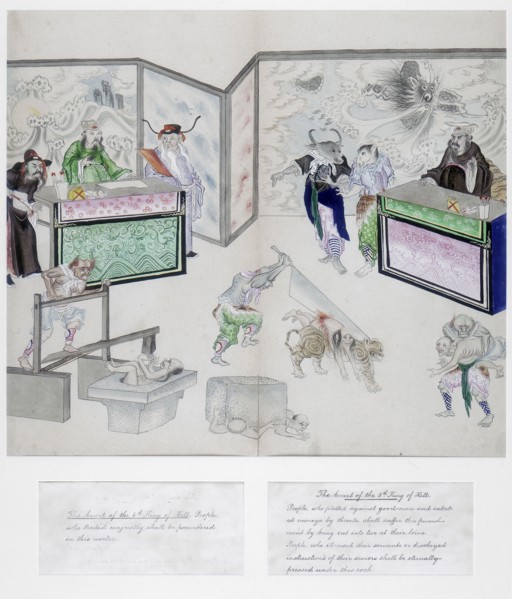 The Court of the 6th King of Hell. People
who traded unjustly shall be pounded
in this mortar.
The Court of the 5th King of Hell.
People who plotted against good men and
at by threats shall suffer this punish-
ment by being cut into two at their loins.
People who their servants or disobeyed
instructions of their seniors shall be eternally
pressed under this rock.